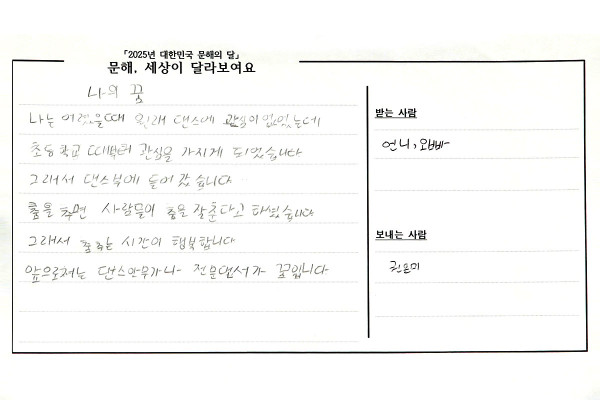 「2025년 대한민국 문해의 달」
문해, 세상이 달라보여요
나의 꿈
나는 어렸을때 원래 댄스에 관심이 없었는데
초등학교 때부터 관심을 가지게 되었습니다
그래서 댄스부에 들어 갔습니다
춤을 추면 사람들이 춤을 잘춘다고 하셨습니다
그래서 춤추는 시간이 행복합니다
앞으로저는 댄스안무가나 전문댄서가 꿈입니다
받는 사람
언니, 오빠
보내는 사람